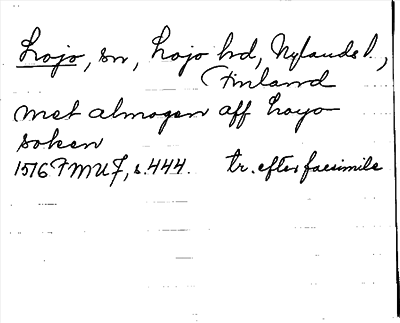 Lojo, sn, Lojo hd, Nylands l.,
Finland
met almogen aff Loyo
soken
1516 FMU 7, s. 444. tr. efter facsimile